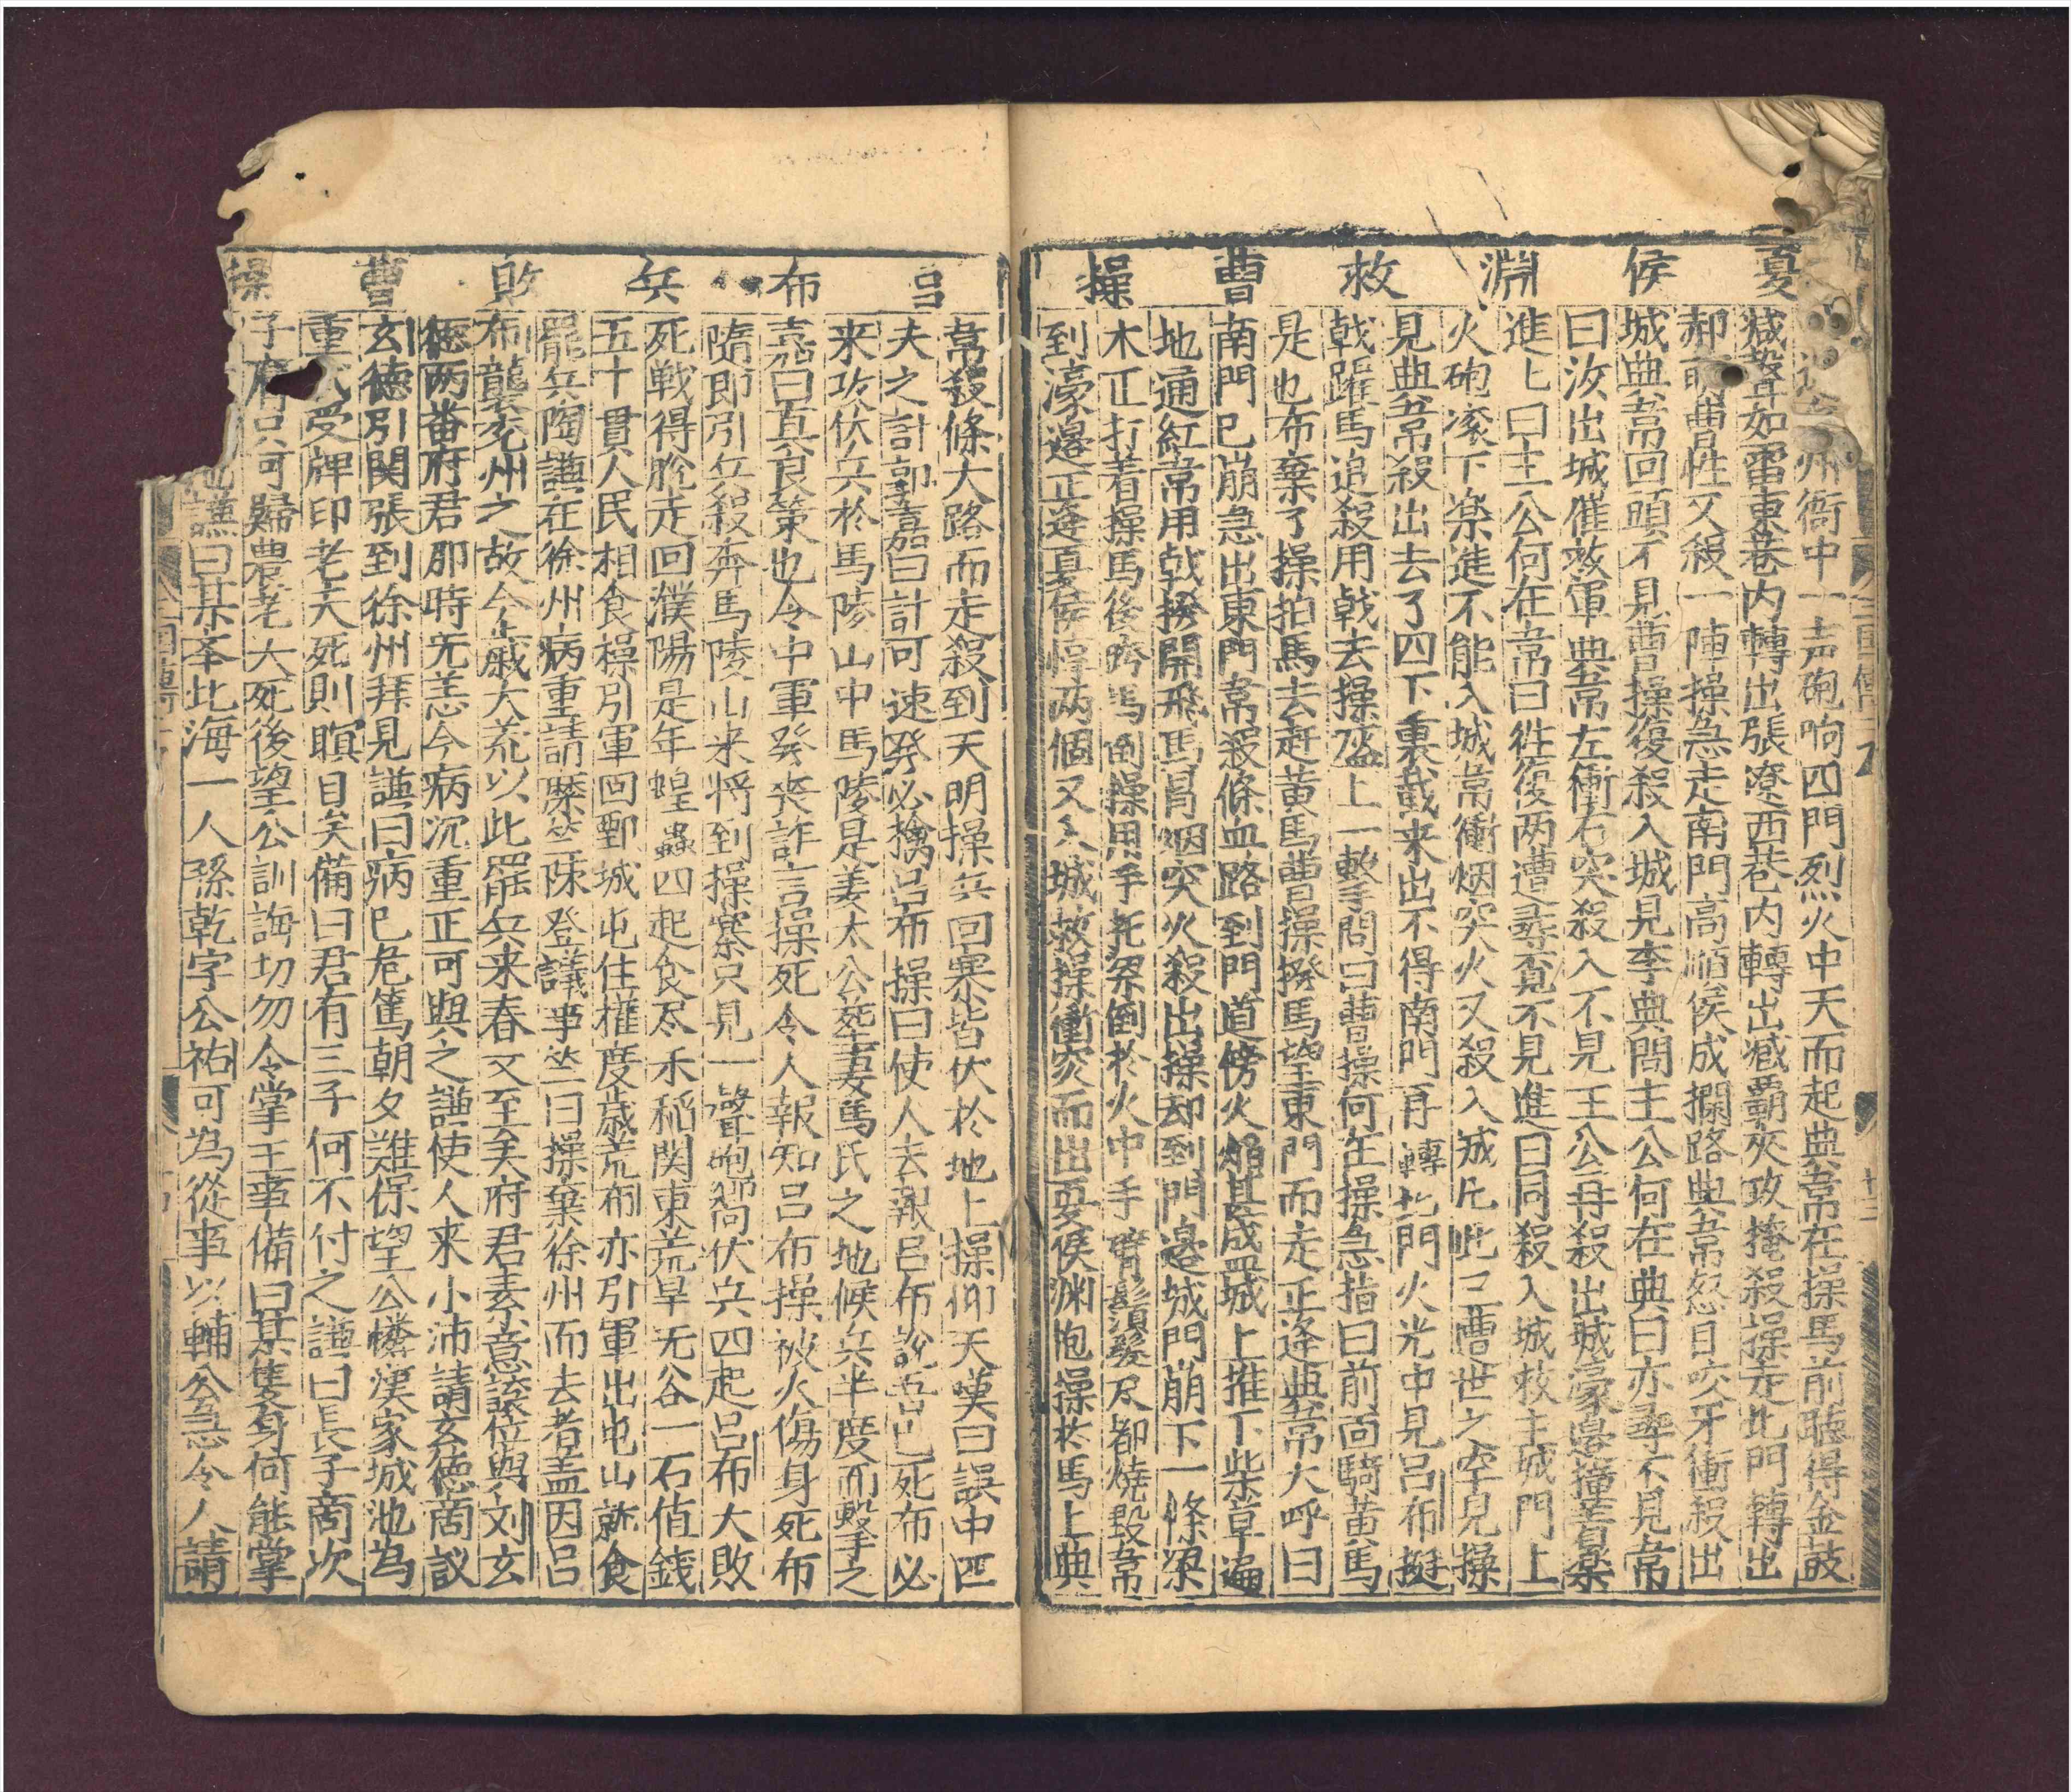 夏侯淵救曹操
州衙中一声砲响四門烈火中天而起典韋在操馬前聴得金鼓
喊聲如雷東巷内轉出張遼西巷内轉出臧霸夾攻掩殺操走北門轉出
郝萌曹性又殺一陣操急走南門高順侯成攔路典韋怒目咬牙衝殺出
城典韋回頭不見曹操復殺入城見李典問主公何在典曰亦尋不見韋
曰汝出城催救軍典韋左衝右突殺入不見主公再殺出城濠邊撞着楽
進上曰主公何在韋曰徃復两遭尋覓不見進曰同殺入城救主城門上
火砲滚下楽進不能入城韋衝烟突火又殺入城
見操
見典韋殺出去了四下裏截来出不得南門再轉北門火光中見呂布挺
戟躍馬追殺用戟去操盔上一敲手問曰曹操何在操急指曰前面騎黄馬
是也布棄了操拍馬去赶黄馬曹操撥馬望東門而走正逢典韋大呼曰
南門已崩急出東門韋殺條血路到門道傍火焰甚盛城上推下柴草遍
地通紅韋用戟撥開飛馬冒烟突火殺出操却到門邊城門崩下一條梁
木正打着操馬後胯馬倒操用手托梁倒於火中手臂鬚髮尽都燒毀韋
到濠邊正逢夏侯惇两個又入城救操衝突而出夏侯渊抱操於馬上典
呂布兵敗曹操
韋殺條大路而走殺到天明操兵回寨皆伏於地上操仰天嘆曰誤中匹
夫之計郭嘉曰計可速發必擒呂布操曰使人去報呂布說吾已死布必
来攻伏兵於馬陵山中馬陵是姜太公塟妻馬氏之地候兵半度而擊之
嘉曰真良策也令中軍發喪詐言操死令人報知呂布操被火傷身死布
隨即引兵殺奔馬陵山来将到操寨只見一聲砲响伏兵四起呂布大敗
死戦得脫走回濮陽是年蝗蟲四起食尽禾稻関東荒旱无谷一石值錢
五十貫人民相食操引軍回鄄城屯住權度歲荒布亦引軍出屯山就食
罷兵陶謙在徐州病重請縻竺陳登議事竺曰操棄徐州而去者盖因呂
布襲兖州之故今歲大荒以此罷兵来春又至矣府君素意讓位與刘玄
德两畨府君那時无恙今病沉重正可與之謙使人来小沛請玄德商议
玄德引関張到徐州拜見謙曰病已危篤朝夕难保望公憐漢家城池為
重受牌印老夫死則瞑目矣備曰君有三子何不付之謙曰長子商次
子府只可歸農老夫死後望公訓誨切勿令掌王事備曰某隻身何能掌
謙曰某奉北海一人孫乾字公祐可為從事以輔公急令人請